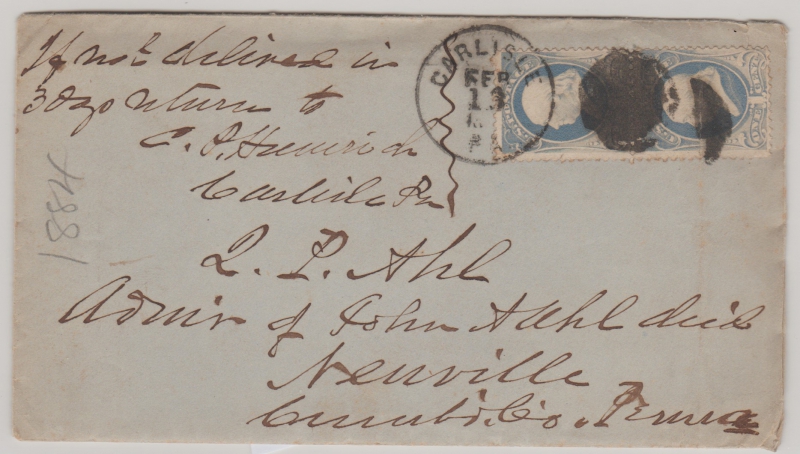 If not delivered in
30 days return to
C. P. Humrich
Carlisle Pa
CARLISLE
FEB
13
1884
Q. P. Ahl
Admir of John A Ahl decd
Newville
Cumb. Co. Penna